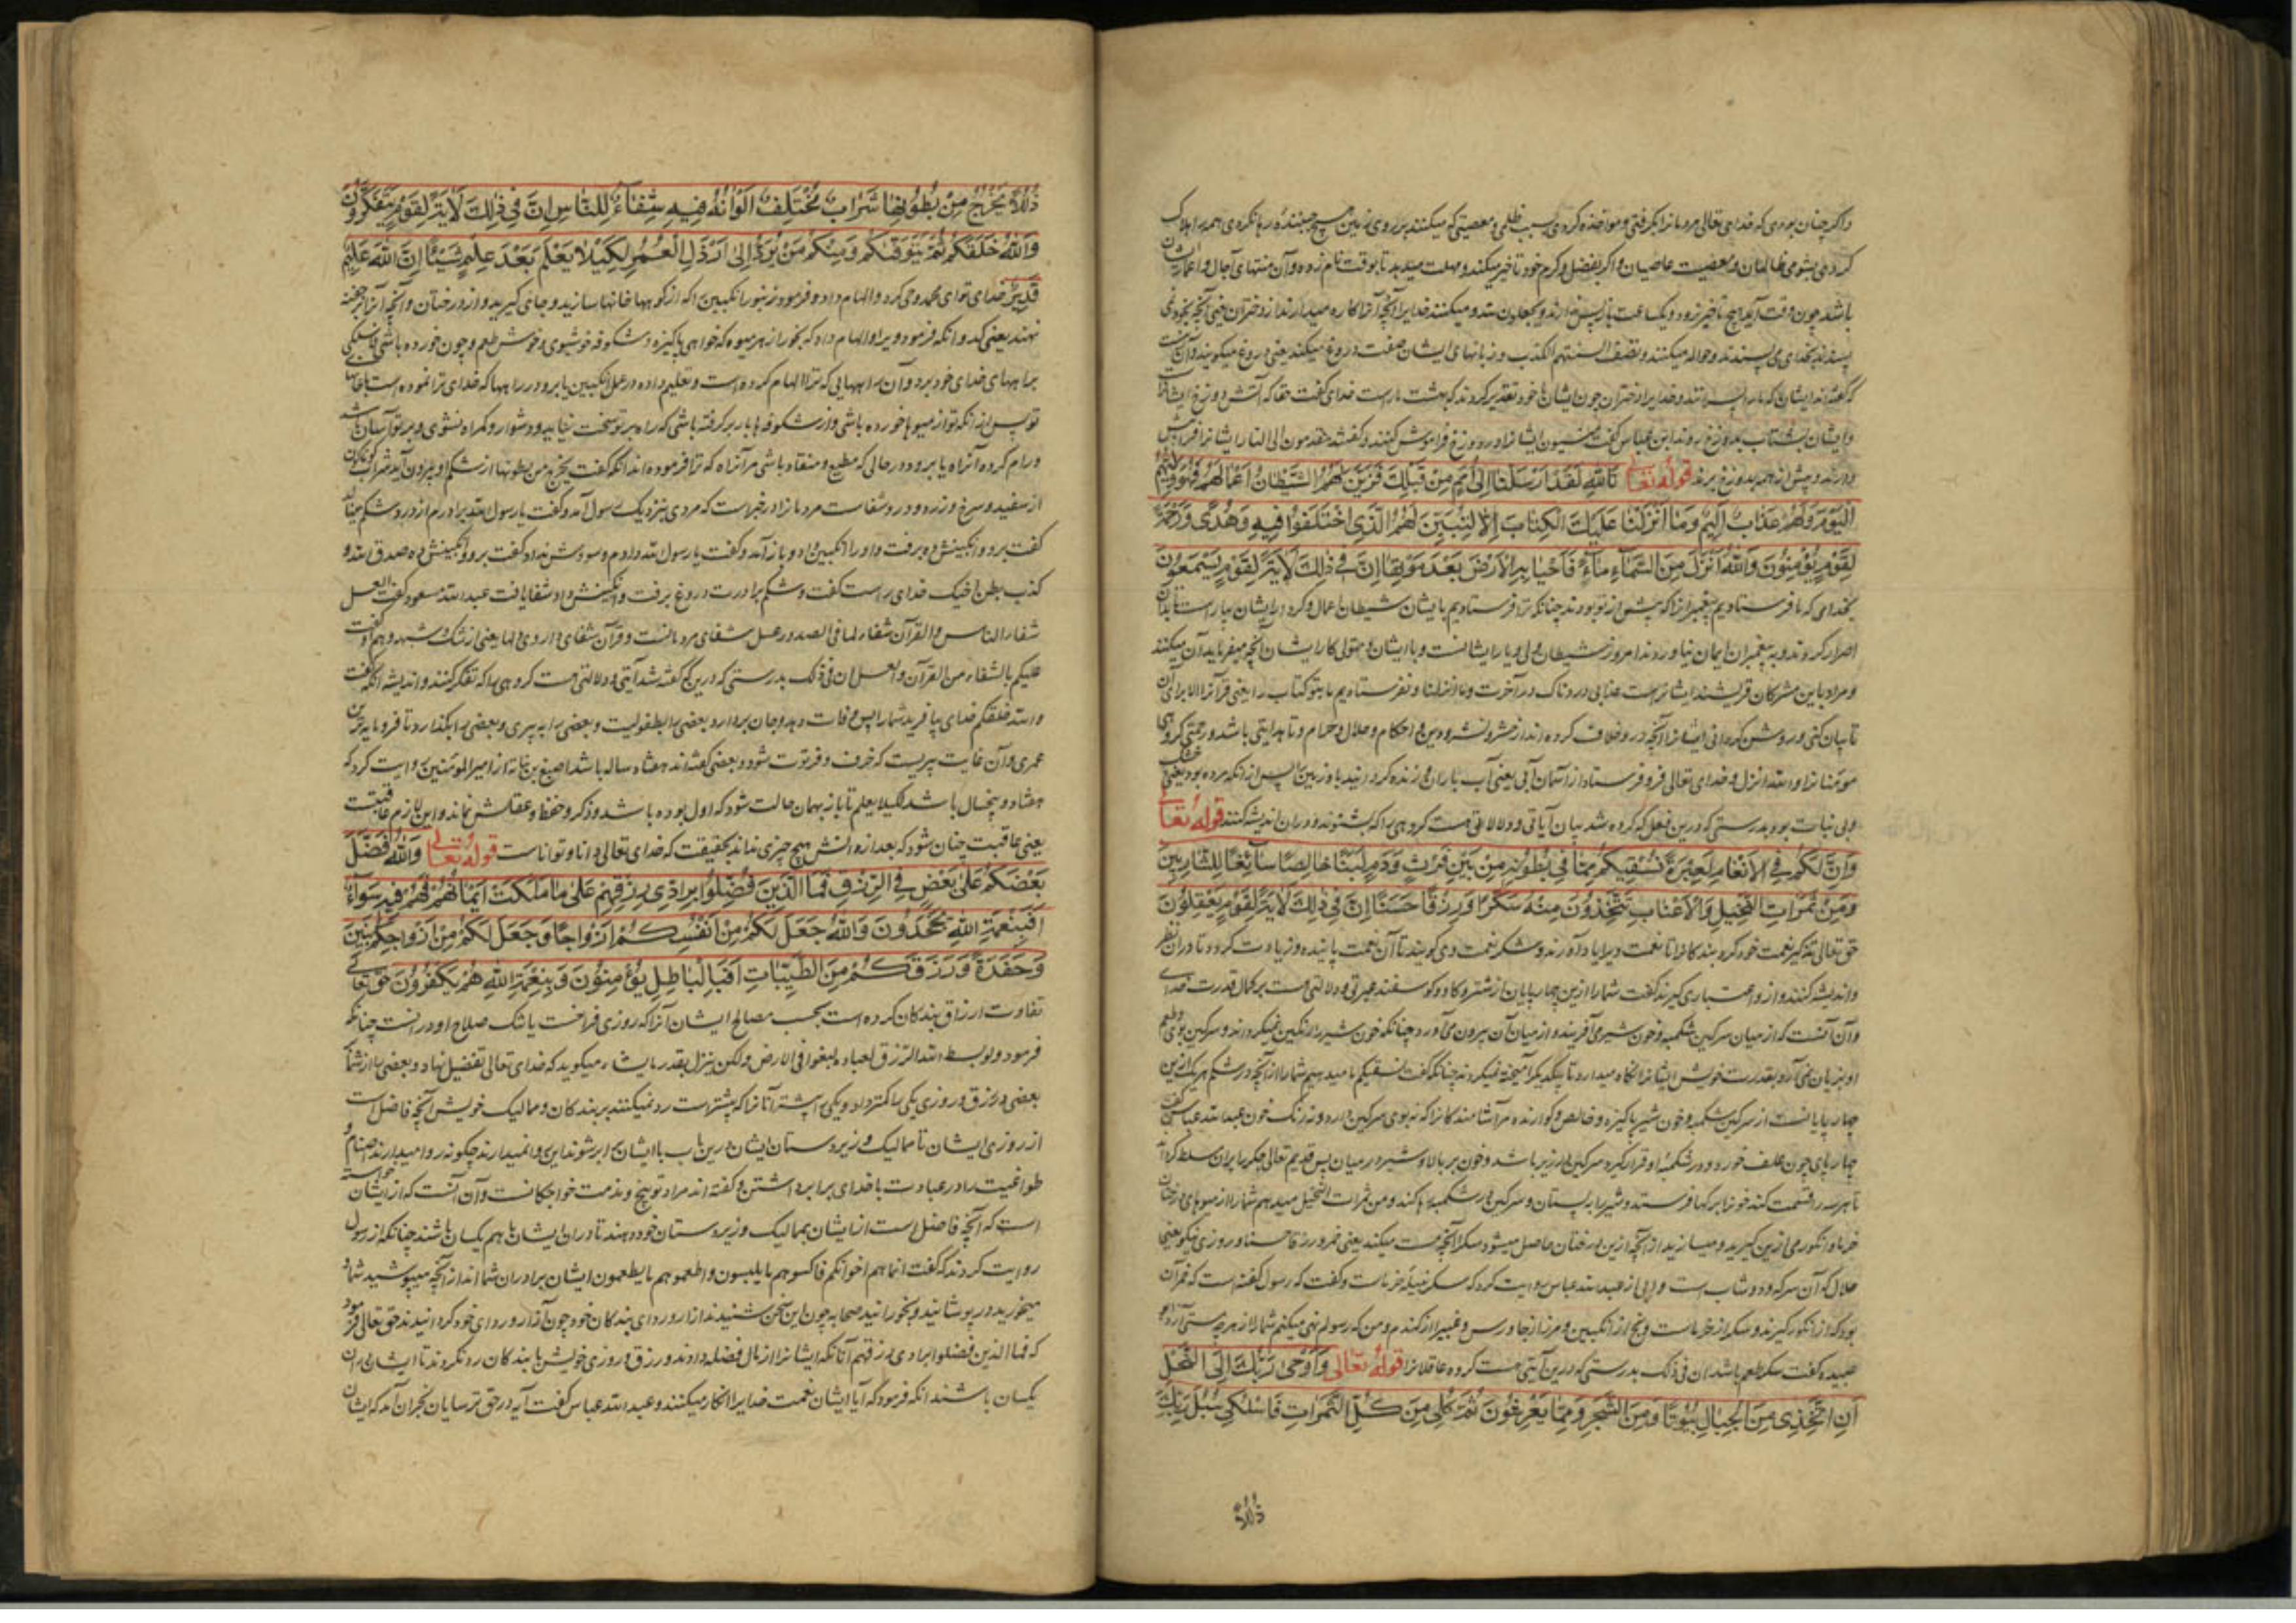 واگر چنان بودی که خدای تعالی مردمانرا بگرفتی و مواخذه کردی بسبب ظلمی و معصیتی که میکنند بر روی زمین هیچ جنبنده رها نکردی همه را هلاک
کردی بشومی ظالمان و معصیت عاصیان واکر بفضل و کرم خود تاخیر میکند و مهلت میدهد تا بوقت نام زده و آن منتهای آجال و اعمار ایشان
باشد چون وقت آید هیچ تاخیر نرود و یکساعت باز پس ندارند و یجعلون لله و میکنند خدایرا آنچه آنرا کاره میدارند از دختران یعنی آنچه بخود نمی
پسندند بخدای می پسندند و حواله میکنند و تصف السنتهم الکذب و زبانهای ایشان صفت دروغ میکند یعنی دروغ میکویند و آن
که گفته اند ایشان که ما را پسرانند و خدایرا دختران چون ایشان با خود تقدیر کردند که بهشت ماراست خدای گفت حقا که آتش دوزخ ایشانرا
وایشان بشتاب بدوزخ روند ابن عباس گفت منسیون ایشانرا در دوزخ فراموش کنند و گفته اند مقدمون الی النار ایشانرا
دارند و پیش از همه بدوزخ برند قوله تعالی تَاللهِ لَقَدْ اَرْسَلْنَا اِلی اُمَمٍ مِنْ قَبْلِکَ فَزَیَّنَ لَهُمُ الشَّیْطَانُ اَعْمَالَهُمْ فَهُوَ وَلِیُّهُمُ
الْیَوْمَ وَلَهُمْ عَذَابٌ اَلِیمٌ وَمَا اَنْزَلْنَا عَلَیْکَ الْکِتَابَ اِلَّا لِتُبَیِّنَ لَهُمُ الَّذِی اخْتَلَفُوا فِیهِ وَهُدًی وَرَحْمَةً
لِقَوْمٍ یُؤْمِنُونَ وَاللهُ اَنْزَلَ مِنَ السَّمَاءِ مَاءً فَاَحْیَا بِهِ الْاَرْضَ بَعْدَ مَوْتِهَا اِنَّ فِی ذٰلِکَ لَاٰیَةً لِقَوْمٍ یَسْمَعُونَ
بخدای که ما فرستادیم پیغمبرانرا که پیش از تو بودند چنانکه ترا فرستادیم بایشان شیطان اعمال و کردار ایشان بیاراست تا بدان
اصرار کردند و به پیغمبران ایمان نیاوردند امروز شیطان ولی و یار ایشانست و با ایشان و متولی کار ایشان آنچه میفرماید آن میکنند
و مراد باین مشرکان قریشند ایشانراست عذابی دردناک در آخرت وما انزلنا و نفرستادیم ما بتو کتاب را یعنی قرآنرا الا برای آن
تا بیان کنی و روشن گردانی ایشانرا آنچه در و خلاف کرده اند از حشر و نشر و دین و احکام و حلال و حرام و تا هدایتی باشد و رحمتی گروهی
مؤمنانرا والله انزل و خدای تعالی فرو فرستاد از آسمان آبی یعنی آب باران و زنده گردانید باو زمین را پس از آنکه مرده بود یعنی خشک
و بی نبات بود بدرستی که درین فعل که کرده شد بیان آیاتی و دلالاتی هست گروهی را که بشنوند و دران اندیشه کنند قوله تعالی
وَاِنَّ لَکُمْ فِی الْاَنْعَامِ لَعِبْرَةً نُسْقِیکُمْ مِمَّا فِی بُطُونِهِ مِنْ بَیْنِ فَرْثٍ وَدَمٍ لَبَنًا خَالِصًا سَائِغًا لِلشَّارِبِینَ
وَمِنْ ثَمَرَاتِ النَّخِیلِ وَالْاَعْنَابِ تَتَّخِذُونَ مِنْهُ سَکَرًا وَرِزْقًا حَسَنًا اِنَّ فِی ذٰلِکَ لَاٰیَةً لِقَوْمٍ یَعْقِلُونَ
حق تعالی تذکیر نعمت خود کرد بندکانرا تا نعمت ویرا یاد آورند و شکر نعمت وی کویند تا آن نعمت پاینده و زیادت کردد و تا دران نظر
واندیشه کنند و ازو اعتباری کیرند گفت شما را ازین چهارپایان از شتر و کاو و کوسفند عبرتی و دلالتی هست بر کمال قدرت خدای
وآن آنست که از میان سرکین شکمبه و خون شیر می آفریند و از میان آن بیرون می آورد چنانکه خون شیر را رنکین نمیکرداند و سرکین بوی و طعم
او بزیان نمی آرد بقدرت خویش ایشانرا نکاه میدارد تا بیکدیگر آمیخته نمیکردند چنانکه گفت نسقیکم ما میدهیم شما را از آنچه در شکم هر یک ازین
چهارپایانست از سرکین شکمبه و خون شیر پاکیزه و خالص و کوارنده مر آشامندکانرا که نه بوی سرکین دارد و نه رنگ خون عبدالله عباس گفت
چهارپای چون علف خورد و در شکمبه او قرار کیرد سرکین در زیر باشد و خون بر بالا و شیر در میان پس قدیم تعالی جکر را بران مسلط کرده
تا هر سه را قسمت کند خونرا برکها فرستد و شیر را به پستان و سرکین در شکمبه رها کند ومن ثمرات النخیل میدهم شما را از میوهای درختان
خرما و انکور می ازین کیرید و میسازید از آنچه ازین درختان حاصل میشود سکرا آنچه مست میکند یعنی خمر و رزقا حسنا و روزی نیکو یعنی
حلال که آن سرکه و دوشاب است و از عبدالله عباس روایت کرد که سکر نبیذ خرماست و گفت که رسول گفته است که خمر آن
بود که از انکور کیرند و سکر از خرماست و بتع از انکبین و مزر از جاورس و غبیرا از کندم و من که رسولم نهی میکنم شما را از هر چه مستی آرد
عبیده گفت سکر طعم باشد ان فی ذلک بدرستی که درین آیتی هست گروه عاقلانرا قوله تعالی وَاَوْحٰی رَبُّکَ اِلَی النَّحْلِ
اَنِ اتَّخِذِی مِنَ الْجِبَالِ بُیُوتًا وَمِنَ الشَّجَرِ وَمِمَّا یَعْرِشُونَ ثُمَّ کُلِی مِنْ کُلِّ الثَّمَرَاتِ فَاسْلُکِی سُبُلَ رَبِّکِ
ذُلُلًا
ذُلُلًا یَخْرُجُ مِنْ بُطُونِهَا شَرَابٌ مُخْتَلِفٌ اَلْوَانُهُ فِیهِ شِفَاءٌ لِلنَّاسِ اِنَّ فِی ذٰلِکَ لَاٰیَةً لِقَوْمٍ یَتَفَکَّرُونَ
وَاللهُ خَلَقَکُمْ ثُمَّ یَتَوَفّٰیکُمْ وَمِنْکُمْ مَنْ یُرَدُّ اِلٰی اَرْذَلِ الْعُمُرِ لِکَیْلَا یَعْلَمَ بَعْدَ عِلْمٍ شَیْئًا اِنَّ اللهَ عَلِیمٌ
قَدِیرٌ خدای تو ای محمد وحی کرد و الهام داد و فرمود زنبور انکبین را که از کوهها خانها سازید و جای کیرید و از درختان و آنچه آنرا
نهند یعنی کندو انکه فرمود ویرا و الهام داد که بخور از هر میوه که خواهی پاکیزه و شکوفه خوشبوی و خوش طعم و چون خورده باشی
براههای خدای خود برو آن راههایی که ترا الهام کرده است و تعلیم داده در عمل انکبین یا برو در راهها که خدای ترا نموده است با خانها
تو پس از انکه تو از میوها خورده باشی و از شکوفه ها بار بر گرفته باشی که راه بر تو سخت نیاید و دشوار و گمراه نشوی و بر تو آسان باشد
ورام کرده آنراه یا برو در حالی که مطیع و منقاد باشی مر آنراه که ترا فرموده اند انکه گفت یخرج من بطونها از شکم او بیرون آید شراب گوناگون
از سفید و سرخ و زرد و درو شفاست مردمانرا در خبرست که مردی بنزدیک رسول آمد و گفت یا رسول الله برادرم از درد شکم مینالد
گفت برو و انکبینش ده برفت و او را انکبین داد و باز آمد و گفت یا رسول الله دادم و سودش نداد گفت برو و انکبینش ده صدق الله و
کذب بطن اخیک خدای راست گفت و شکم برادرت دروغ برفت و انکبینش داد شفا یافت عبدالله مسعود گفت العسل
شفاء للناس والقرآن شفاء لما فی الصدور عسل شفای مردمانست و قرآن شفای داروی دلها یعنی از شک و شبهه و هم او گفت
علیکم بالشفاء من القرآن والعسل ان فی ذلک بدرستی که درین که گفته شد آیتی و دلالتی هست گروهی را که تفکر کنند و اندیشه انکه گفت
والله خلقکم خدای بیافرید شما را پس وفات دهد و جان بردارد بعضی را بطفولیت و بعضی را به پیری و بعضی را بگذارد تا فرومایه ترین
عمری و آن غایت پیریست که خرف و فرتوت شود و بعضی گفته اند هشتاد ساله باشد اصبغ بن نباته از امیر المؤمنین روایت کرد که
هفتاد و پنجسال باشد لکیلا یعلم تا باز بهمان حالت شود که اول بوده باشد و ذکر و حفظ و عقلش نماند و این لازم عاقبت
یعنی عاقبت چنان شود که بعد از دانش هیچ چیزی نداند بحقیقت که خدای تعالی دانا و تواناست قوله تعالی وَاللهُ فَضَّلَ
بَعْضَکُمْ عَلٰی بَعْضٍ فِی الرِّزْقِ فَمَا الَّذِینَ فُضِّلُوا بِرَادِّی رِزْقِهِمْ عَلٰی مَا مَلَکَتْ اَیْمَانُهُمْ فَهُمْ فِیهِ سَوَاءٌ
اَفَبِنِعْمَةِ اللهِ یَجْحَدُونَ وَاللهُ جَعَلَ لَکُمْ مِنْ اَنْفُسِکُمْ اَزْوَاجًا وَجَعَلَ لَکُمْ مِنْ اَزْوَاجِکُمْ بَنِینَ
وَحَفَدَةً وَرَزَقَکُمْ مِنَ الطَّیِّبَاتِ اَفَبِالْبَاطِلِ یُؤْمِنُونَ وَبِنِعْمَةِ اللهِ هُمْ یَکْفُرُونَ حق تعالی
تفاوت ارزاق بندکان کرده است بحسب مصالح ایشان آنرا که روزی فراخست یا تنک صلاح او در انست چنانکه
فرمود ولو بسط الله الرزق لعباده لبغوا فی الارض ولکن ینزل بقدر ما یشاء میکوید که خدای تعالی تفضیل نهاد و بعضی را از شما بر
بعضی در رزق و روزی یکی را کمتر داد و یکی را بیشتر آنانرا که بیشترست رد نمیکنند بر بندکان و ممالیک خویش آنچه فاضل است
از روزی ایشان تا ممالیک و زیردستان ایشان درین باب با ایشان برابر شوند این روا نمیدارند چکونه روا میدارند اصنام و
طواغیت را در عبادت با خدای برابر داشتن و گفته اند مراد توبیخ و مذمت خواجکانست و آن آنست که از ایشان خواسته
است که آنچه فاضل است از ایشان بممالیک و زیردستان خود دهند تا دران ایشان با هم یکسان باشند چنانکه از رسول
روایت کردند که گفت انما هم اخوانکم فاکسوهم مما یلبسون واطعموهم مما یطعمون ایشان برادران شما اند از آنچه میپوشید شما و
میخورید درپوشانید و بخورانید صحابه چون این سخن شنیدند ازار و ردای بندکان خود چون ازار و ردای خود کردانیدند حق تعالی فرمود
که فما الذین فضلوا برادی رزقهم آنانکه ایشانرا از مال فضله دادند و رزق و روزی خویش با بندکان رد نکردند تا ایشان دران
یکسان باشند انکه فرمود که آیا ایشان نعمت خدایرا انکار میکنند و عبدالله عباس گفت آیه در حق ترسایان نجران آمد که ایشان